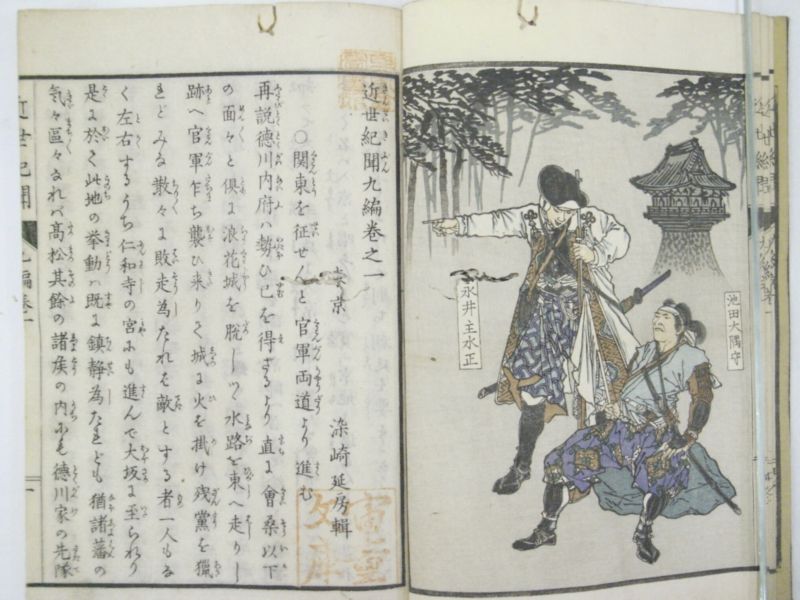 池田大隅守
永井主水正
近世紀聞九編巻之一
東京　染崎延房輯
○関東を征せんと官軍両道より進む
再説徳川内府ハ勢ひ已を得ざるより直に會桑以下
の面々と倶に浪花城を脱しつ水路を東へ走りし
跡へ官軍乍ち襲ひ来りて城に火を掛け残黨を獵
れどみな散々に敗走為たれバ敵とする者一人もな
く左右するうち仁和寺の宮にも進んで大坂に至られけり
是に於て此地の挙動ハ既に鎮静為たれども猶諸藩の
気々區々なれバ高松其餘の諸侯の内にも徳川家の先隊
近世紀聞　九編巻一　一